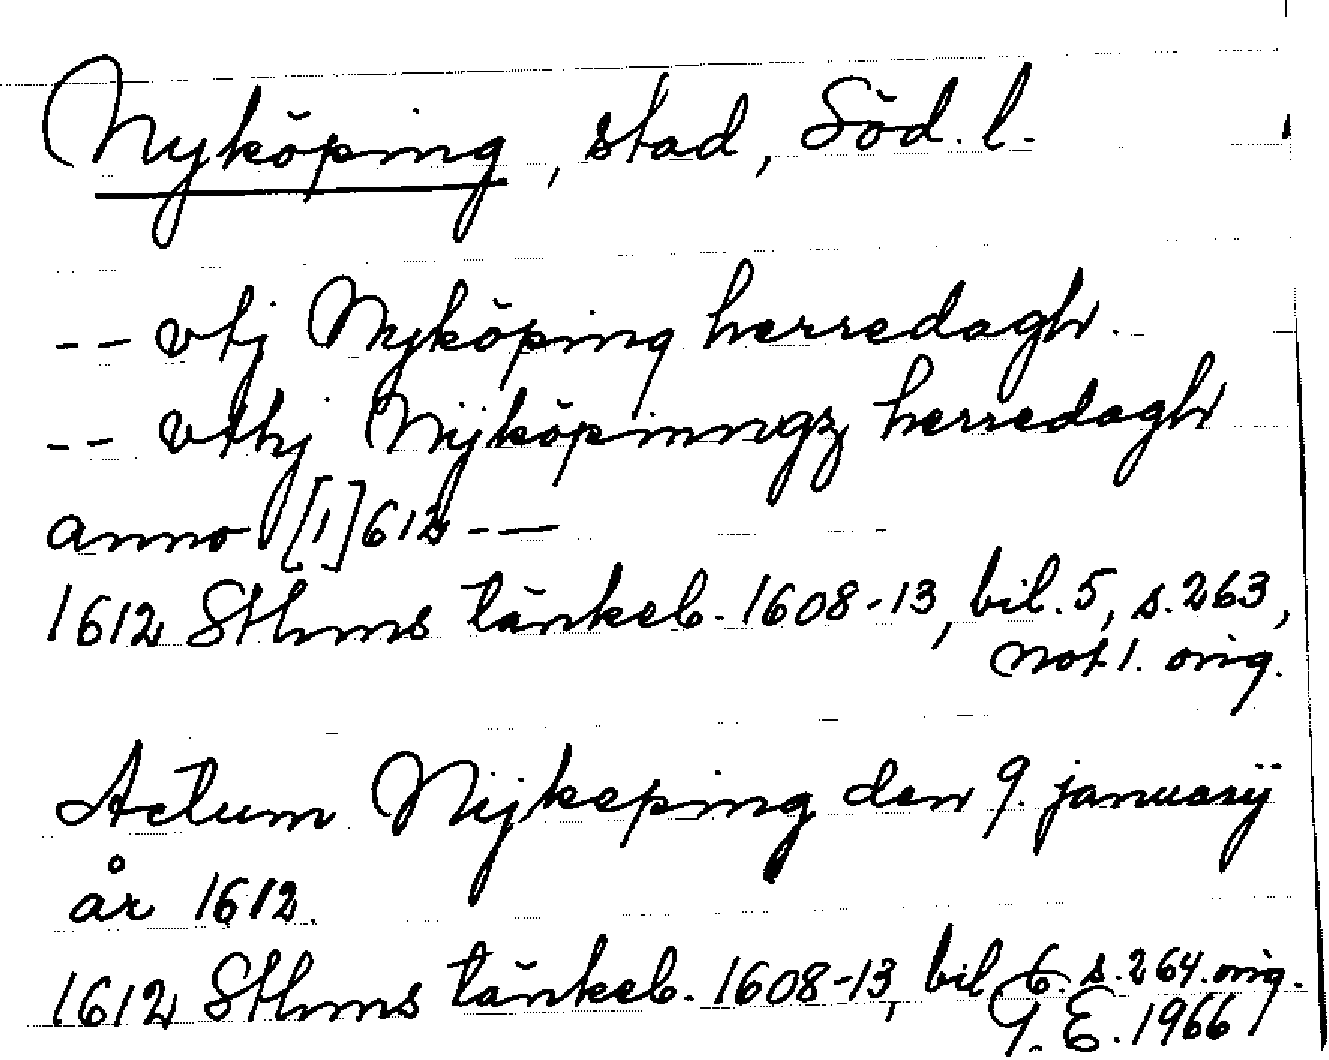 Nyköping, stad, Söd. l.
-- vtj Nyköping herredagh.
-- vthj Nijköpinngz herredagh
anno [1]612 --
1612 Sthms tänkeb. 1608-13, bil. 5, s. 263,
not 1. orig.
Actum Nijkeping den 9. januarÿ
år 1612.
1612 Sthms tänkeb. 1608-13, bil 6. s. 264. orig.
G. E. 1966